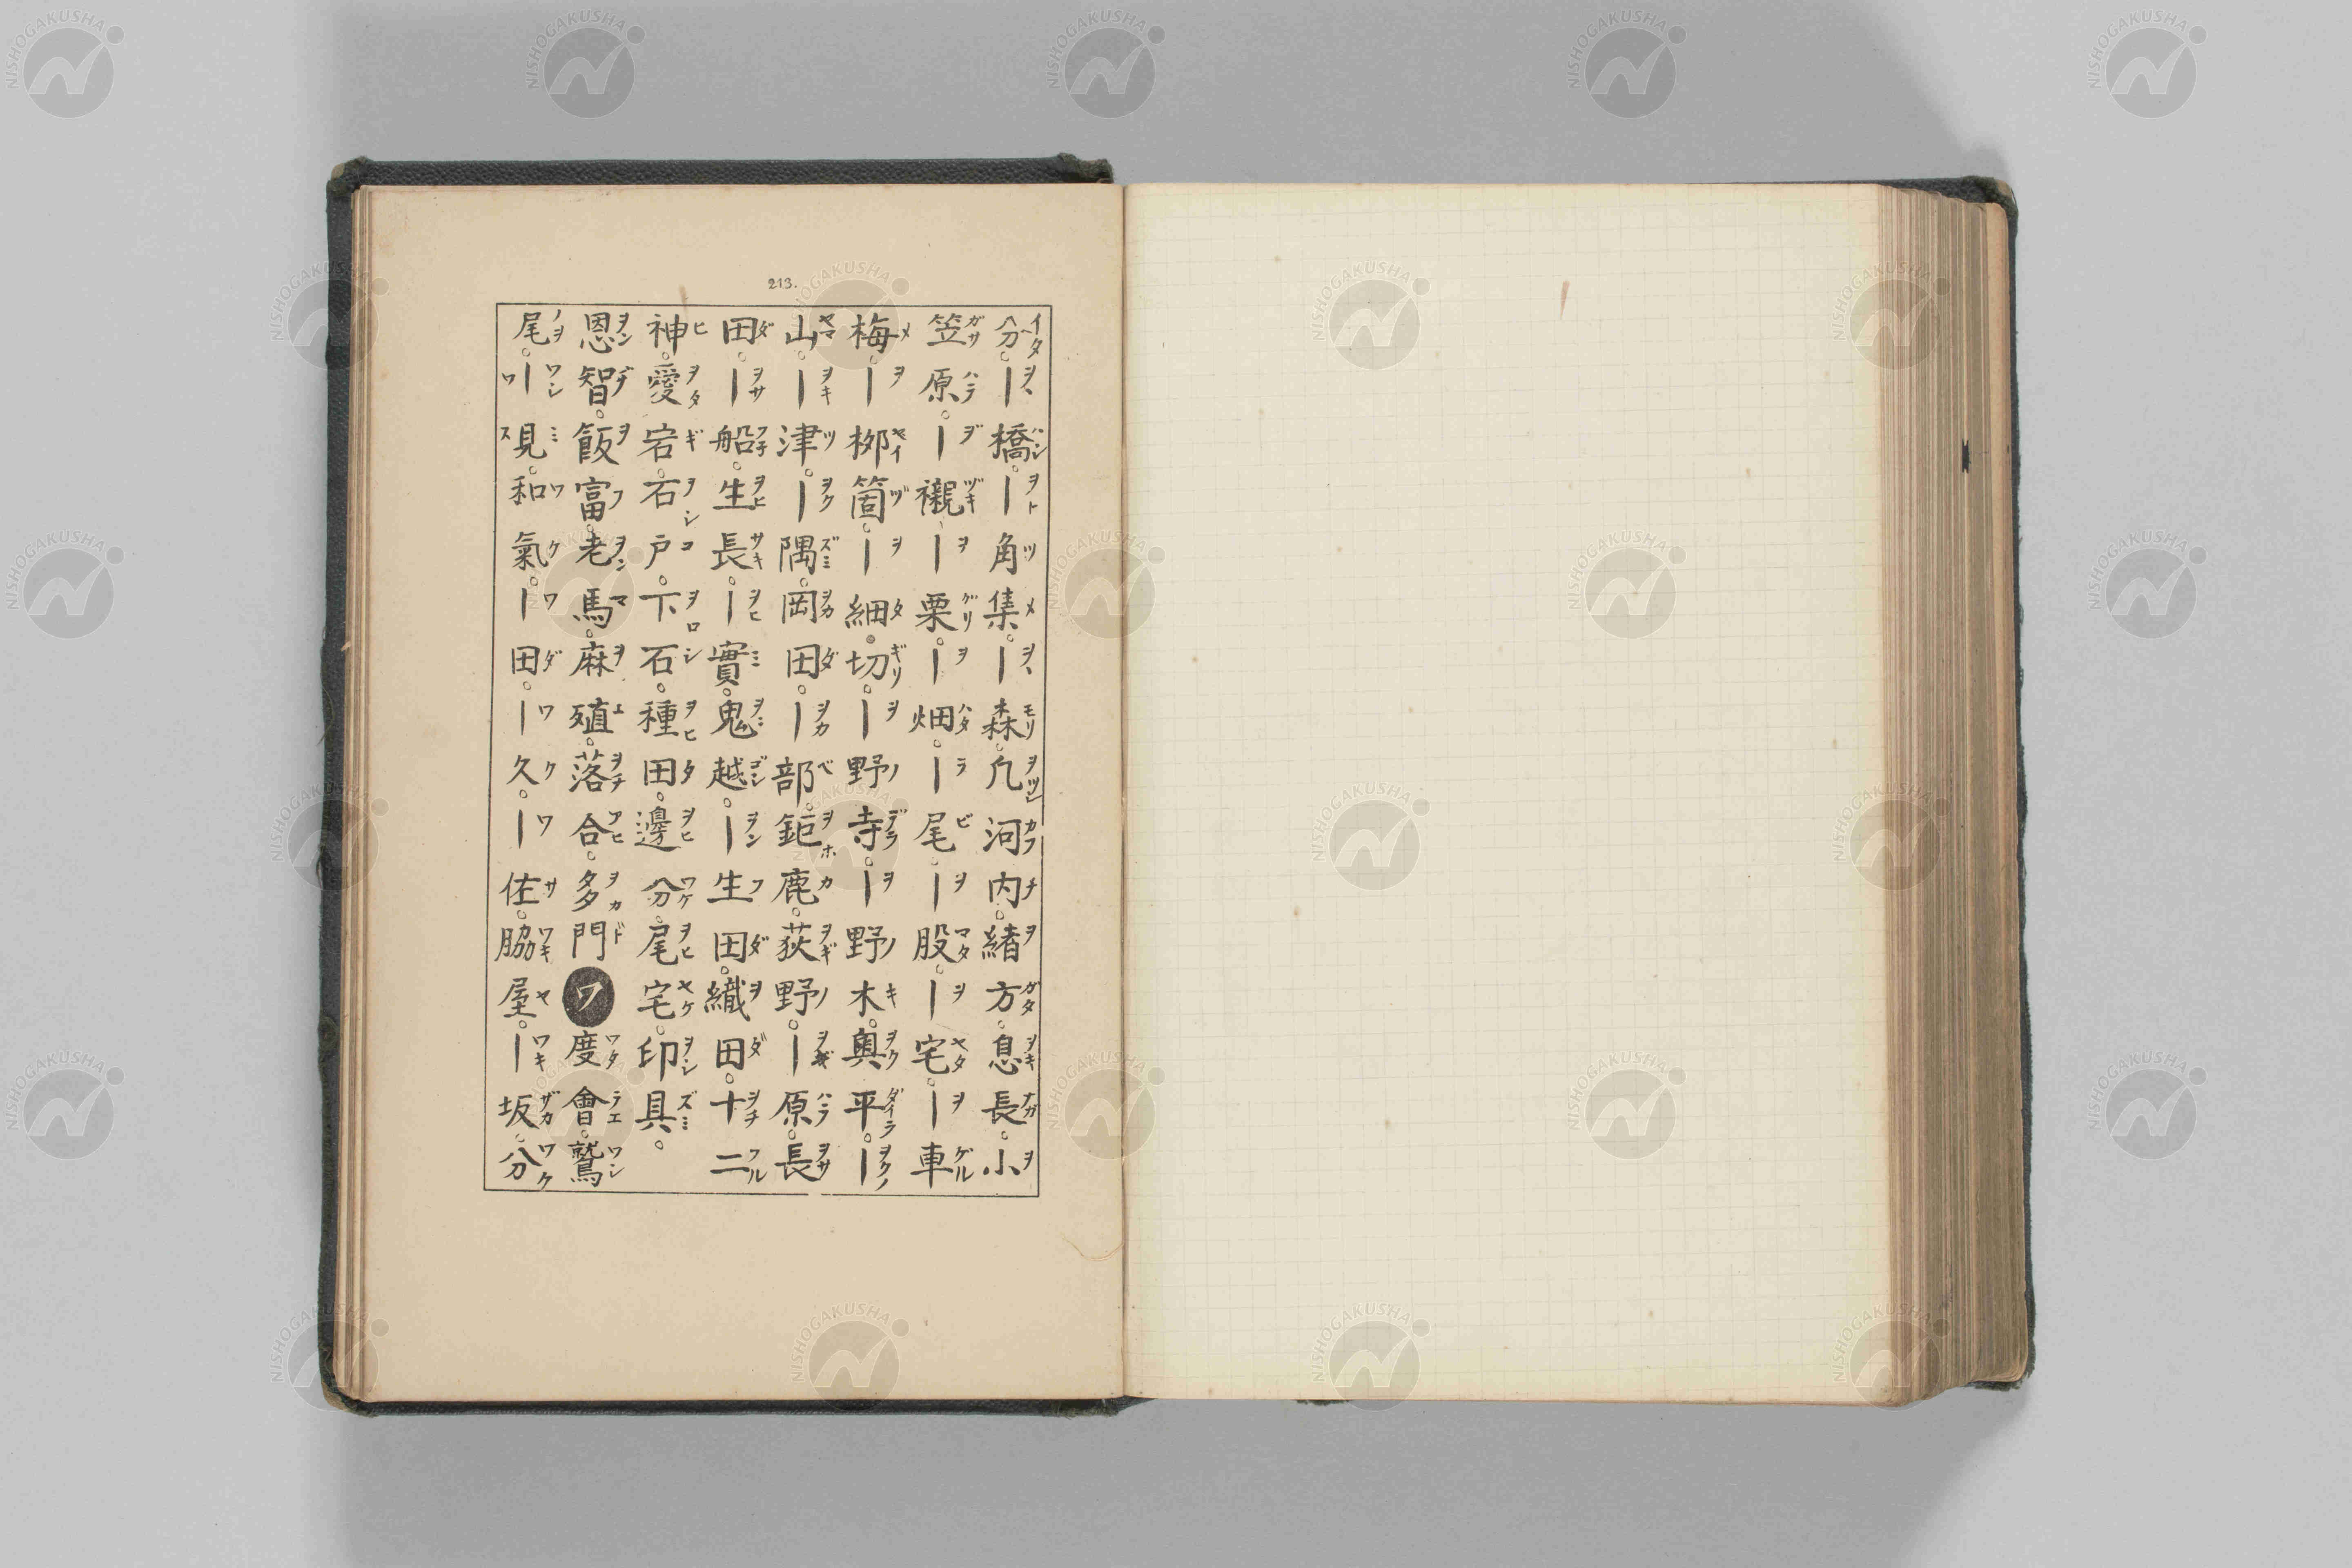 213.
分。｜橋。｜角集。｜森。凡河内。緒方。息長。小
笠原。｜襯。｜栗。｜畑。｜尾。｜股。｜宅。｜車
梅。｜栁箇。｜細。切。｜野寺。｜野木。奥平。｜
山。｜津。｜隅。岡田。｜部。鉅鹿。荻野。｜原。長
田。｜船。生長。｜實。鬼越。｜生田。織田。十二
神。愛宕。石戸。下石。種田。邊分。尾宅。印具。
恩智。飯富。老馬。麻殖。落合。多門ワ度會。鷲
尾。｜見。和氣。｜田。｜久。｜佐。脇屋。｜坂。分
NISHOGAKUSHA